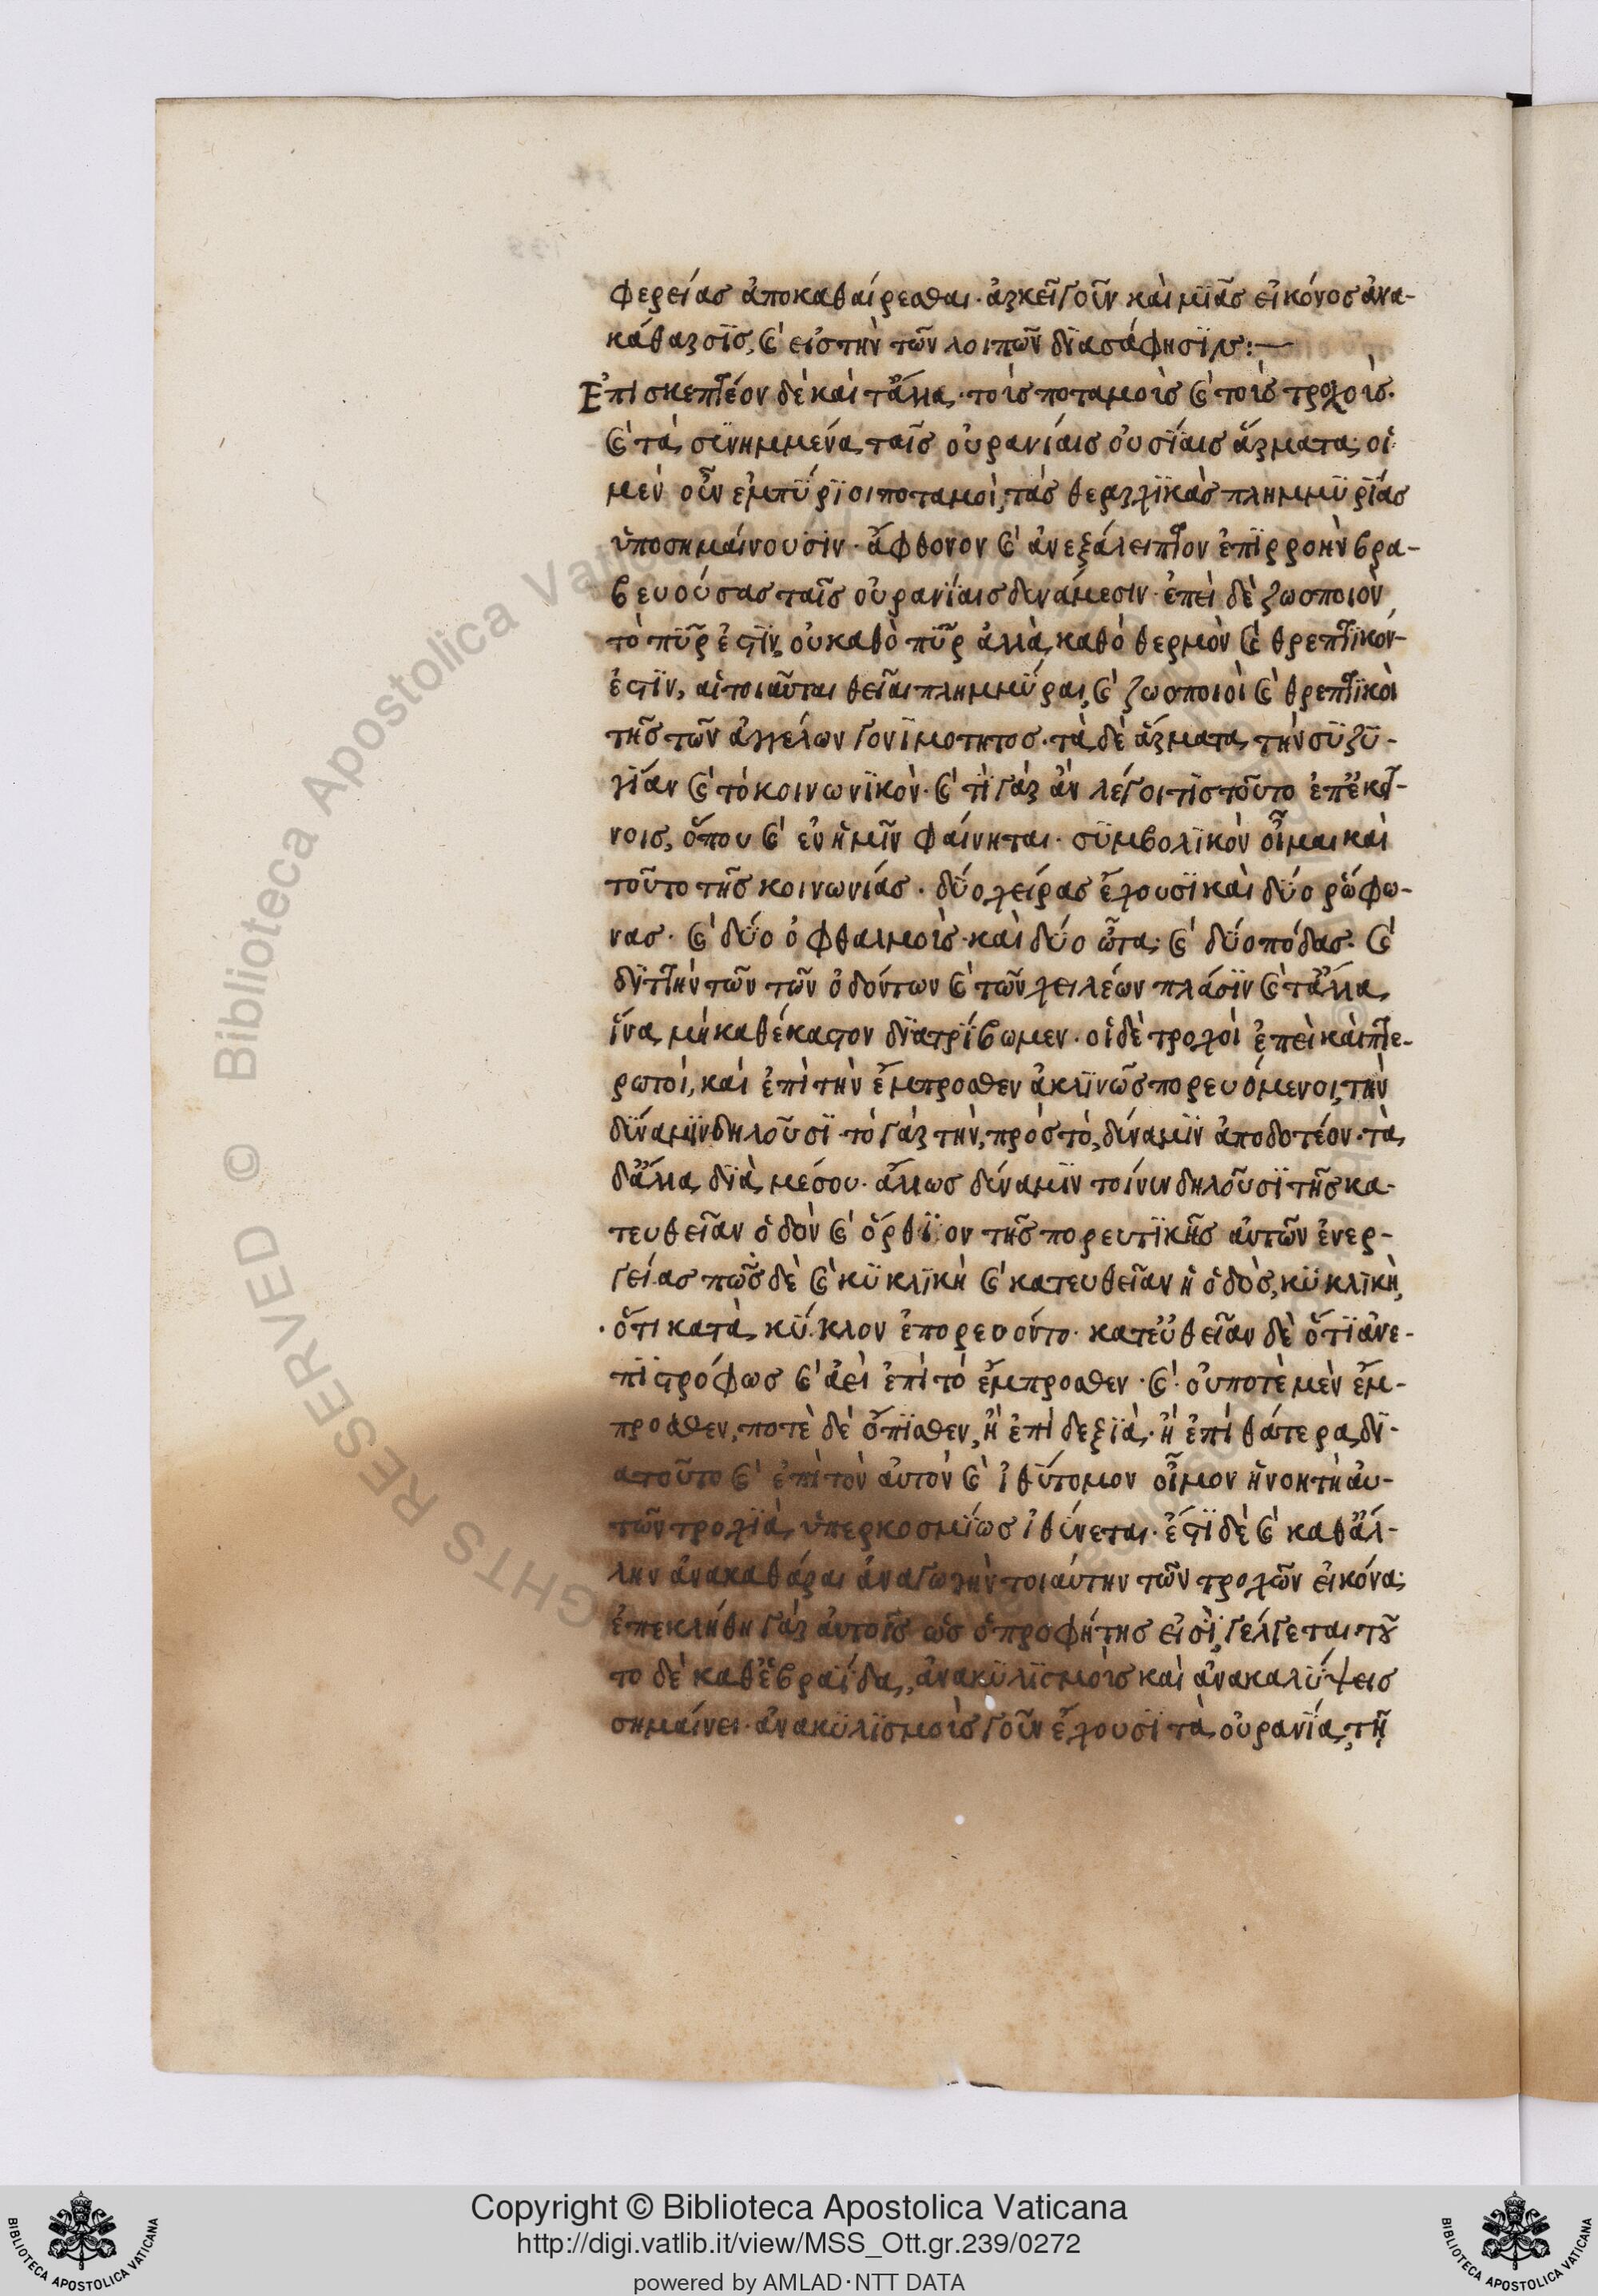 φερείας ἀποκαθαίρεσθαι· ἀρκεῖ γοῦν καὶ μϊᾶς εἰκόνος ἀνα-
κάθαρσϊς, καὶ εἰς τὴν τῶν λοιπῶν δϊασάφησϊν :—
Ἐπισκεπτέον δὲ καὶ τἄλλα· τοὺς ποταμοὺς καὶ τοὺς τροχοὺς·
καὶ τὰ συνημμένα ταῖς οὐρανίαις οὐσΐαις ἅρματα· οἱ
μὲν οὖν ἐμπΰρϊοι ποταμοὶ, τὰς θεαρχϊκὰς πλημμϋρΐας
ὑποσημαίνουσϊν· ἄφθονον καὶ ἀνεξάλειπτον ἐπϊρροὴν βρα-
βευούσας ταῖς οὐρανΐαις δυνάμεσιν· ἐπεὶ δὲ ζωοποιὸν
τὸ πῦρ ἐστΐν, οὐ καθὸ πῦρ ἀλλὰ καθὸ θερμὸν καὶ θρεπτϊκόν
ἐστϊν, αἱ τοιαῦται θεῖαι πλημμΰραι, καὶ ζωοποιοὶ καὶ θρεπτϊκοὶ
τῆς τῶν ἀγγέλων γονΐμότητος· τὰ δὲ ἅρματα τὴν σϋζϋ-
γΐαν καὶ τὸ κοινωνϊκὸν· καὶ τΐ γὰρ ἂν λέγοι τὶς τοῦτο ἐπ' ἐκεί-
νοις, ὅπου καὶ ἐν ἡμῖν φαίνηται· σϋμβολϊκὸν οἶμαι καὶ
τοῦτο τῆς κοινωνίας· δύο χεῖρας ἔχουσϊ καὶ δύο ῥώθω-
νας· καὶ δύο ὀφθαλμοὺς· καὶ δύο ὦτα· καὶ δύο πόδας· καὶ
δϊττὴν τῶν τῶν ὀδόντων καὶ τῶν χειλέων πλάσϊν καὶ τἄλλα,
ἵνα μὴ καθέκαστον δϊατρΐβωμεν· οἱ δὲ τροχοὶ ἐπεὶ καὶ πτε-
ρωτοί, καὶ ἐπὶ τὴν ἔμπροσθεν ἀκλϊνῶς πορευόμενοι, τὴν
δύναμϊν δηλοῦσϊ· τὸ γὰρ τὴν, πρὸς τὸ, δύναμϊν ἀποδοτέον· τὰ
δἄλλα δϊὰ μέσου· ἄλλως δύναμϊν τοίνυν δηλοῦσϊ τῆς κα-
τευθεῖαν ὁδὸν καὶ ὄρθϊον τῆς πορευτϊκῆς αὐτῶν ἐνερ-
γείας πῶς δὲ καὶ κϋκλϊκὴ καὶ κατευθεῖαν ἡ ὁδὸς, κϋκλϊκὴ,
· ὅτι κατὰ κΰκλον ἐπορεύοντο· κατεὐθεῖαν δὲ ὅτϊ ἀνε-
πϊστρόφως καὶ ἀεὶ ἐπὶ τὸ ἔμπροσθεν· καὶ· οὐ ποτὲ μὲν ἔμ-
προσθεν, ποτὲ δὲ ὄπϊσθεν, ἢ ἐπὶ δεξϊὰ· ἢ ἐπὶ θάτερα, δϊ-
ατοῦτο καὶ ἐπὶ τὸν αὐτὸν καὶ ἰθΰτομον οἶμον ἡ νοητὴ αὐ-
τῶν τροχϊὰ, ὑπερκοσμΐως ἰθύνεται· ἔστϊ δὲ καὶ καθἄλ-
λην ἀνακαθάραι ἀναγωγὴν τοιαύτην τῶν τροχῶν εἰκόνα·
ἐπεκλήθη γὰρ αὐτοῖς ὡς ὁ προφήτης εἰσΐ, γέλγεται· τοῦ
το δὲ καθἑβραΐδα, ἀνακϋλϊσμοὺς καὶ ἀνακαλΰψεις
σημαίνει· ἀνακϋλϊσμοὺς γοῦν ἔχουσϊ τὰ οὐρανΐα, τῇ
Copyright © Biblioteca Apostolica Vaticana
http://digi.vatlib.it/view/MSS_Ott.gr.239/0272
powered by AMLAD·NTT DATA